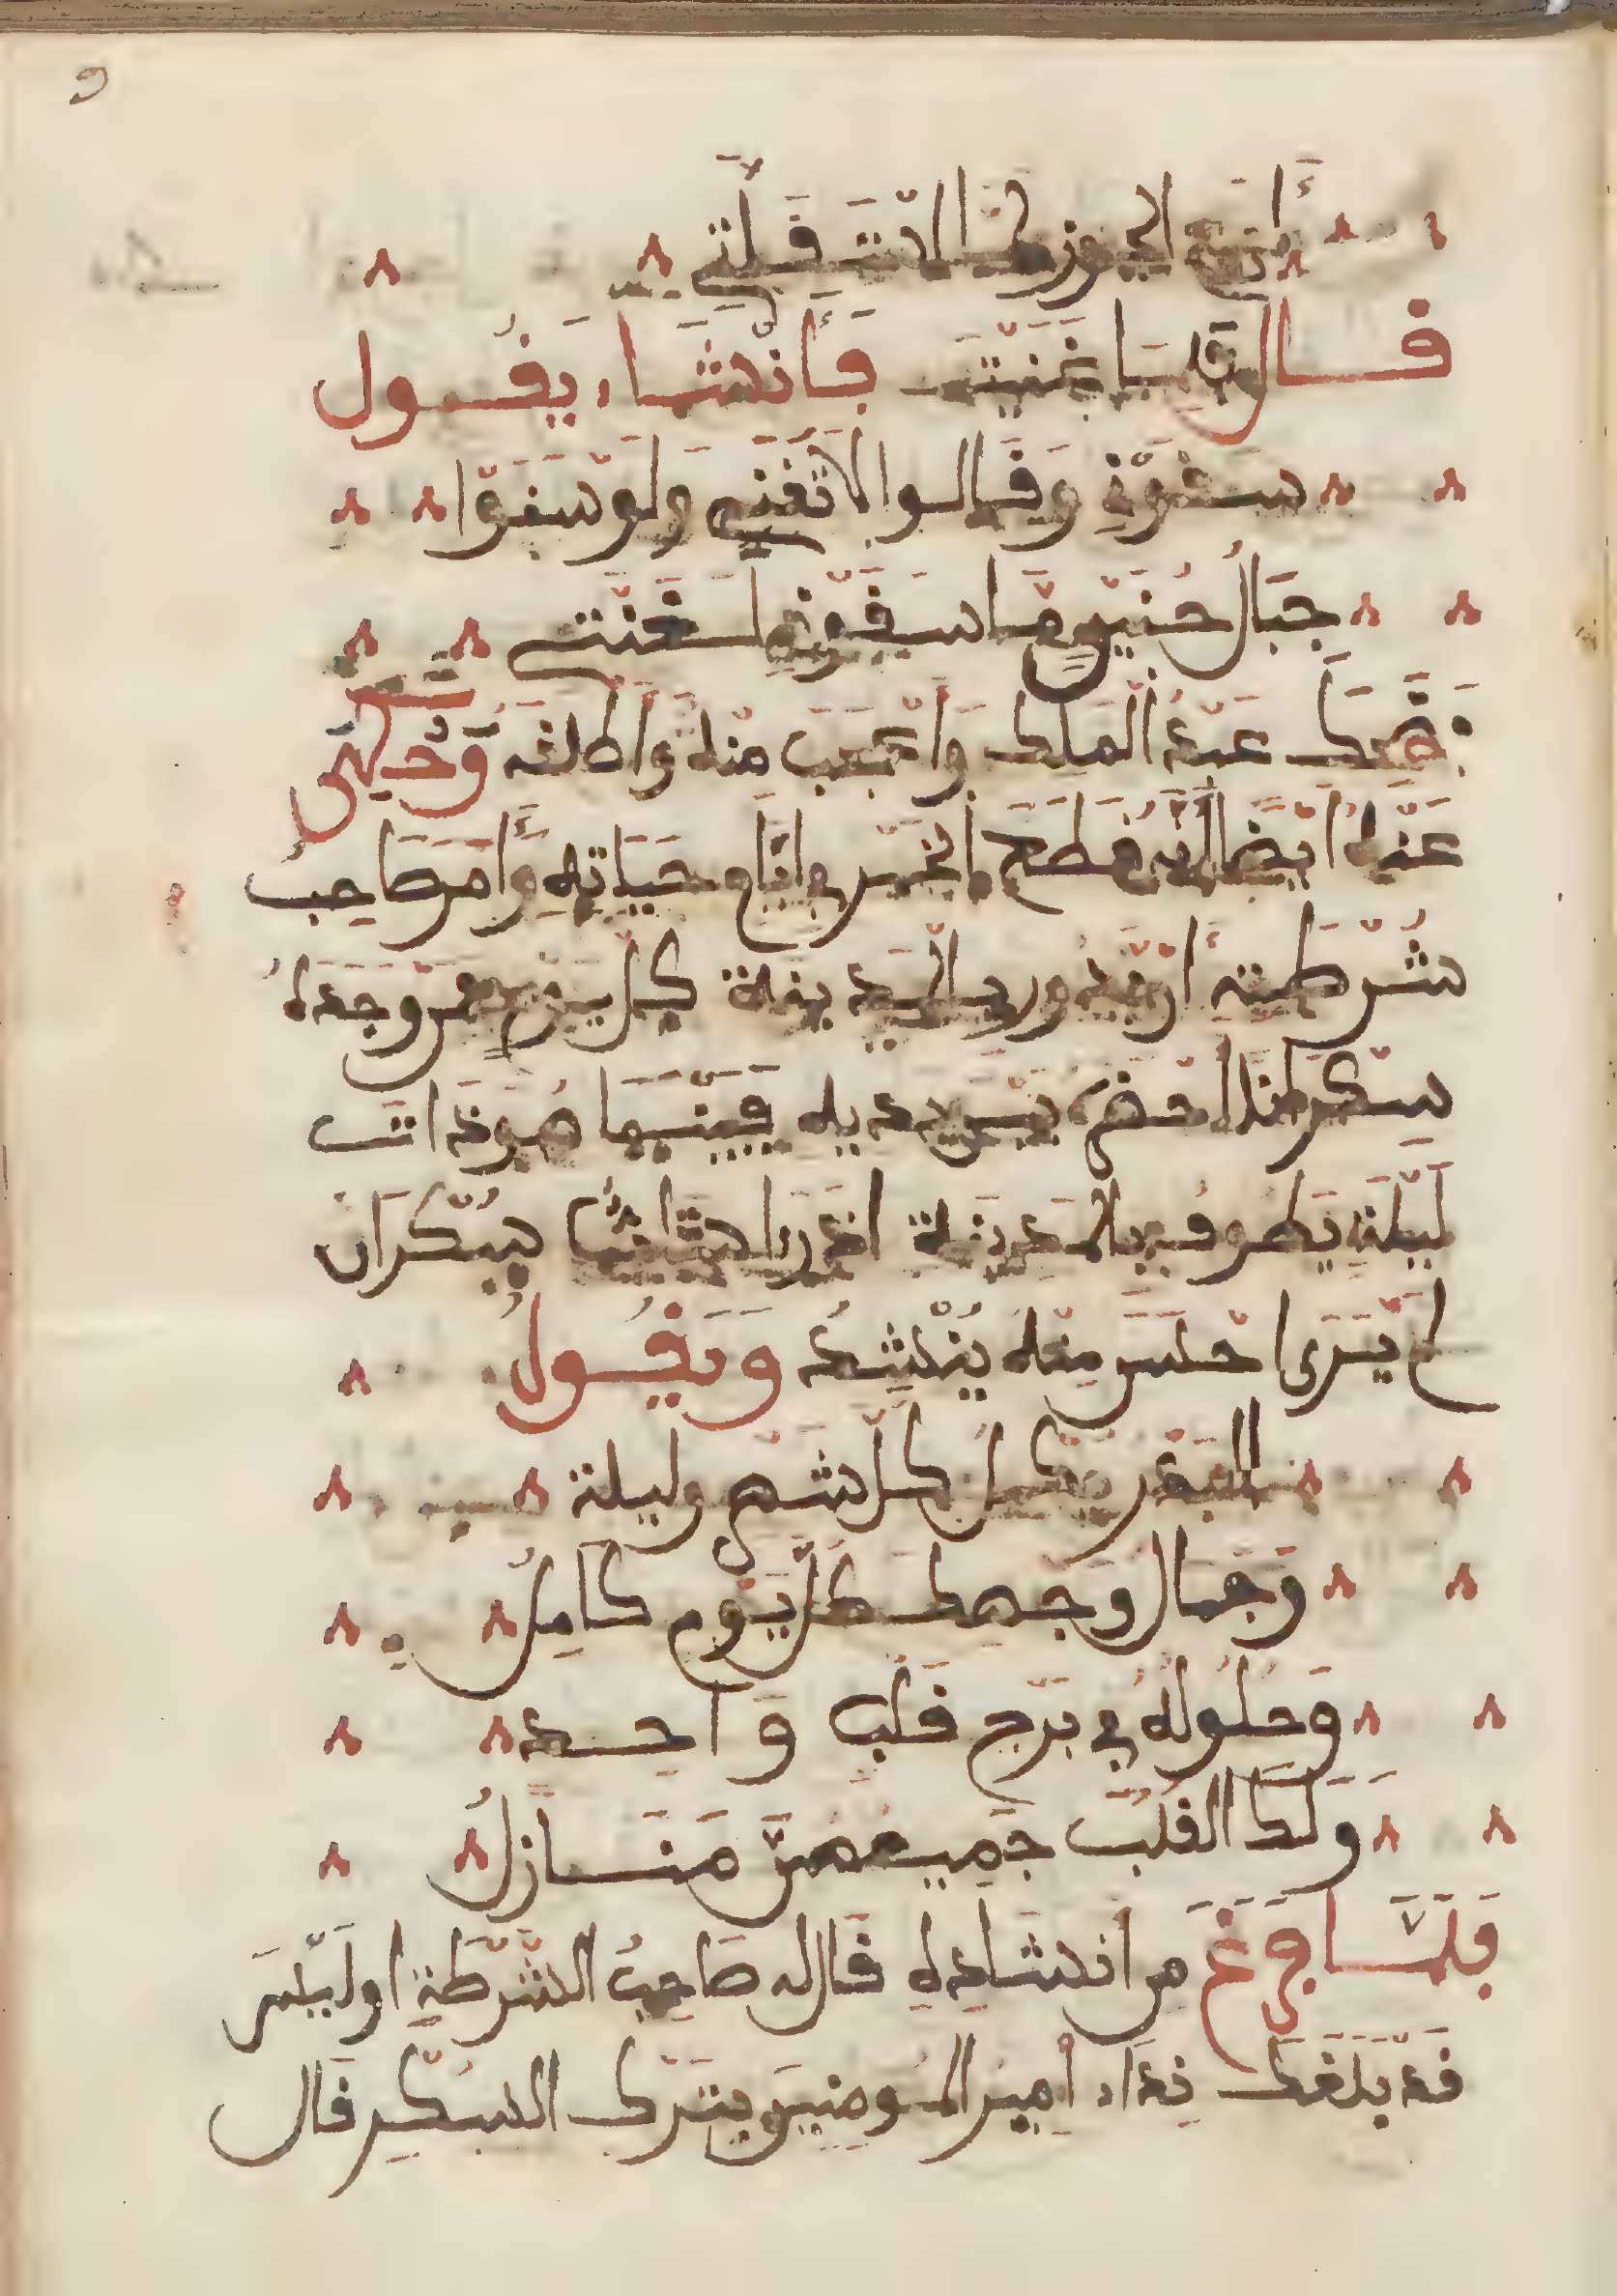 قال وما غنيت فأنشاء يقول
سقوني وقالوا لا تغني ولو سقوا
جبال حنين ما سقوني لغنت
فضحك عبد الملك وأعجب منه وأطلقه وحكى
عنه ايضا انه قطع الخمر في ايام حياته وأمر صاحب
شرطته أن يدور بالمدينة كل يوم فمن وجده
سكرانا احضره بين يديه فبينما هو ذات
ليلة يطوف بالمدينة اذ رءا شابا سكران
لم ير احسن منه ينشد ويقول
البدر يكمل كل شهر وليلة
وجمال وجهك كل يوم كامل
وحلوله في برج قلب واحد
ولك القلب جميعهن منازل
فلما فرغ من انشاده قال له صاحب الشرطة اوليس
قد بلغك نداء امير المومنين يترك السكر قال